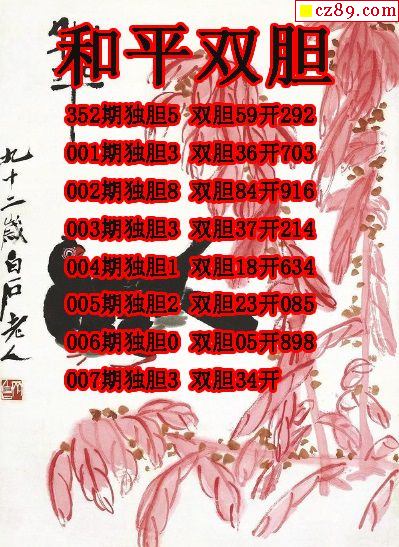 cz89.com
和平双胆
352期独胆5 双胆59开292
001期独胆3 双胆36开703
002期独胆8 双胆84开916
003期独胆3 双胆37开214
004期独胆1 双胆18开634
005期独胆2 双胆23开085
006期独胆0 双胆05开898
007期独胆3 双胆34开
九十二岁白石老人